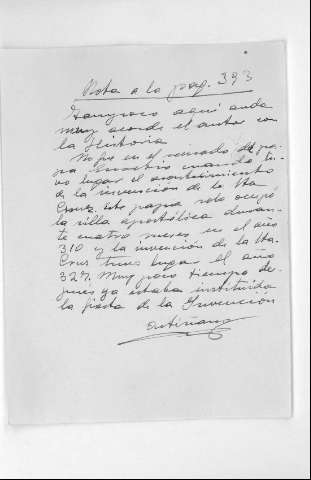 Nota a la pag. 393
Tampoco aquí anda
muy acorde el autor con
la Historia
No fue en el reinado del pa-
pa Eusebio cuando tu-
vo lugar el acontecimiento
de la invención de la Sta
Cruz. Este papa solo ocupó
la silla apostólica duran-
te cuatro meses en el año
310 y la invención de la Sta.
Cruz tuvo lugar el año
327. Muy poco tiempo des-
pués ya estaba instituida
la fiesta de la Invención